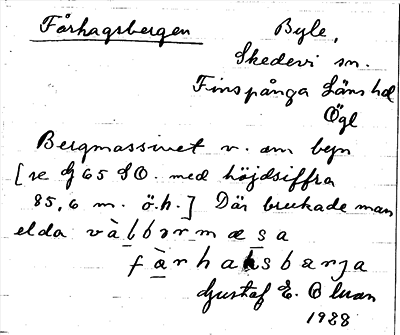 Fårhagsbergen
Byle,
Skedevi sn.
Finspånga Läns hd
Ögl
Bergmassivet v. om byn
[se Gj 65 SO. med höjdsiffra
85,6 m. ö.h.] Där brukade man
elda vàlbərmæsa
fàrhaksbærja
Gustaf E. Olson
1928